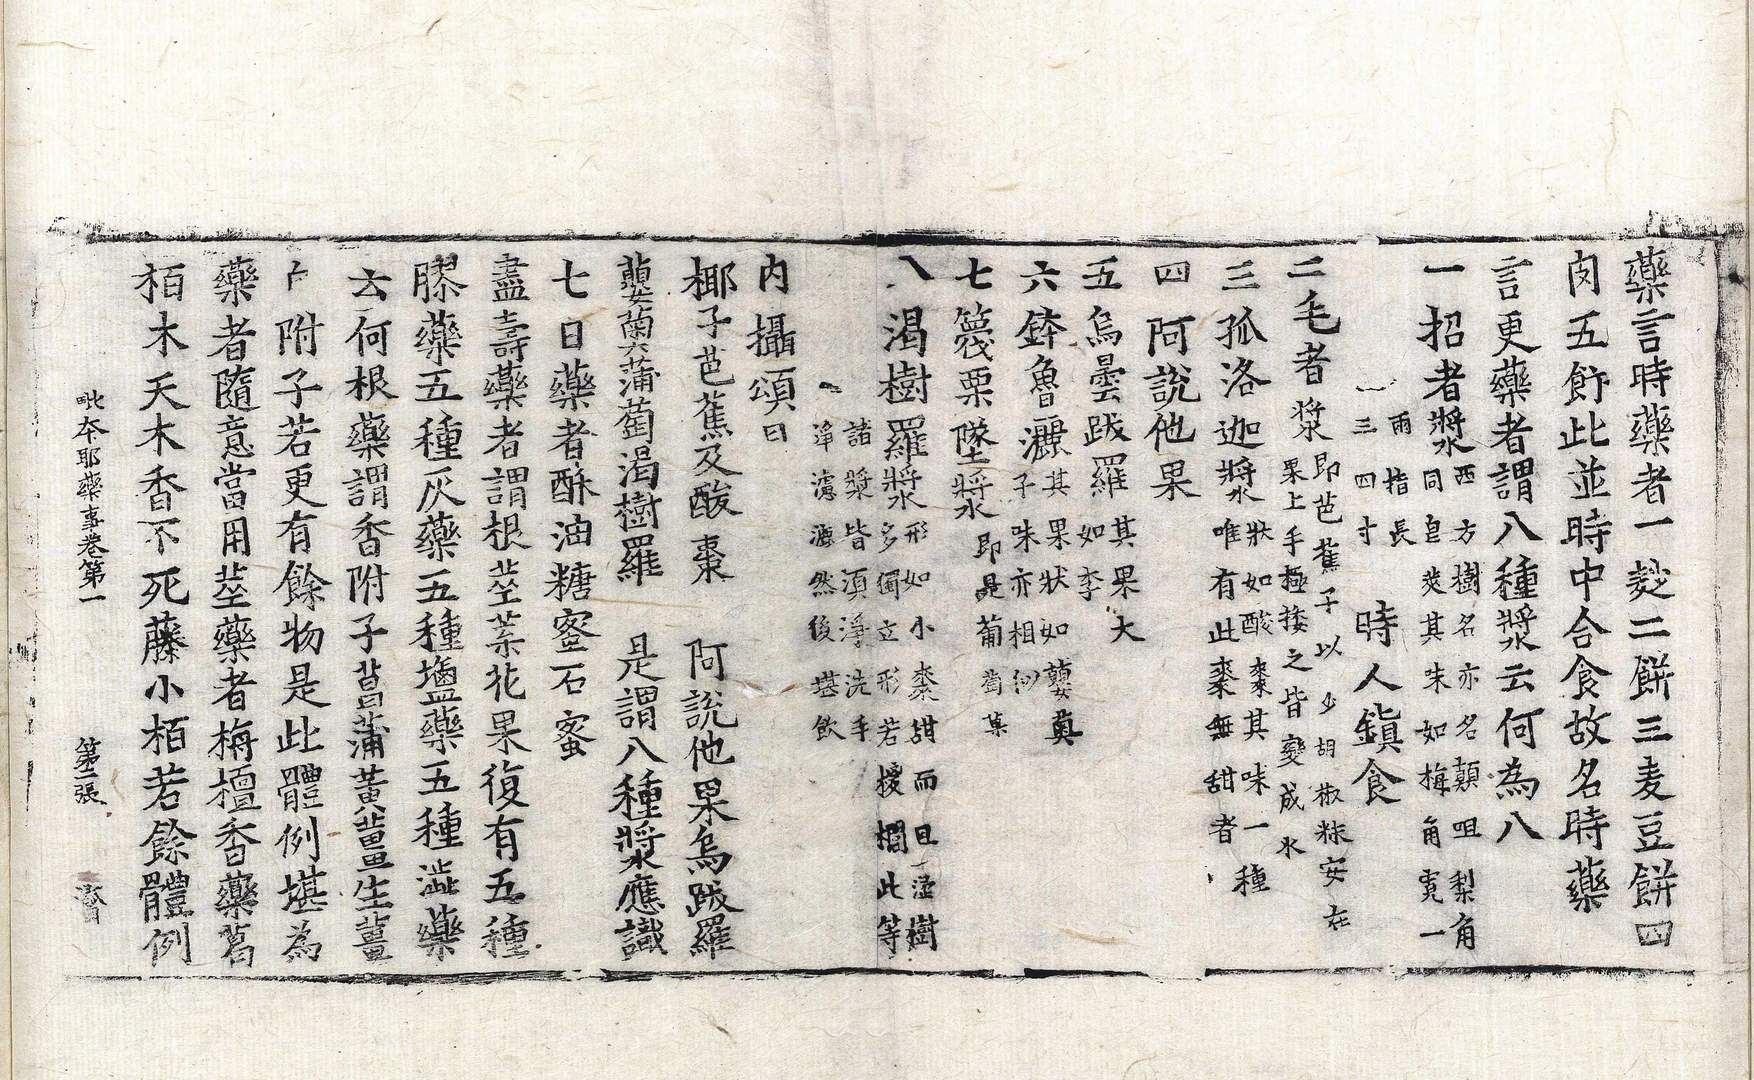 藥言時藥者一麨二餅三麦豆餅四
肉五飰此並時中合食故名時藥
言更藥者謂八種漿云何為八
一招者漿西方樹名亦名顛咀梨角
同皀莢其味如梅角寬一
兩指長
三四寸時人鎮食
二毛者漿即芭蕉子以少胡椒粖安在
果上手極捼之皆變成水
三孤洛迦漿狀如酸棗其味一種
唯有此棗無甜者
四阿說他果
五烏曇跋羅其果大
如李
六鉾魯灑其果狀如蘡薁
子味亦相似
七篾栗墜漿即是葡萄菓
八渴樹羅漿形如小棗甜而且澁樹
多獨立形若椶櫚此等
諸漿皆須淨洗手
淨濾漉然後堪飲
内攝頌曰
椰子芭蕉及酸棗 阿說他果烏跋羅
蘡薁蒲萄渴樹羅 是謂八種漿應識
七日藥者酥油糖蜜石蜜
盡壽藥者謂根莖葉花果復有五種
膠藥五種灰藥五種鹽藥五種澁藥
云何根藥謂香附子菖蒲黃薑生薑
附子若更有餘物是此體例堪為
藥者隨意當用莖藥者栴檀香藥葛
栢木天木香不死藤小栢若餘體例
毗奈耶藥事卷第一 第二張